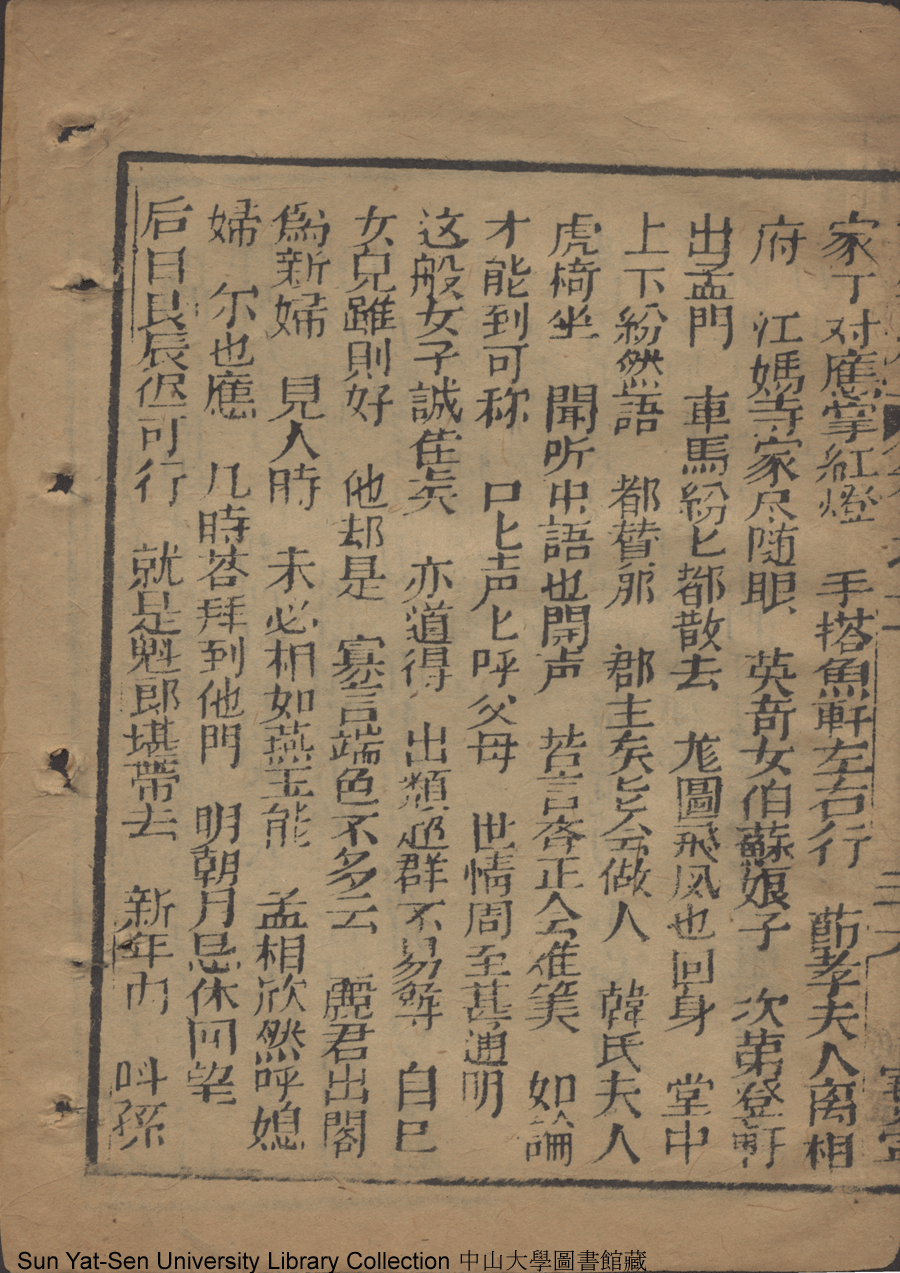 家丁对應掌紅燈　手搭魚軒左右行　節孝夫人离相
府　江媽寺家尽随眼　英奇女伯蘇娘子　次第登軒
出孟門　車馬紛匕都散去　尨圖飛风也回身　堂中
上下紛然語　都替那　郡主矣　会做人　韓氏夫人
虎椅坐　聞听中語也開声　苦言吝正今准笑　如論
才能到可称　口匕声匕呼父母　世情周至甚通明
这般女子誠佳矣　亦道得　出類超群不易尋　自已
女兒雖則好　他却是　寡言端色不多云　麗君出閣
為新婦　見人時　未必相如燕玉能　孟相欣然呼媳
婦　尔也應　几時荅拜到他門　明朝月忌休回望
后日良辰促可行　就是魁郎堪帶去　新年内　呌孫
Sun Yat-Sen University Library Collection 中山大學圖書館藏